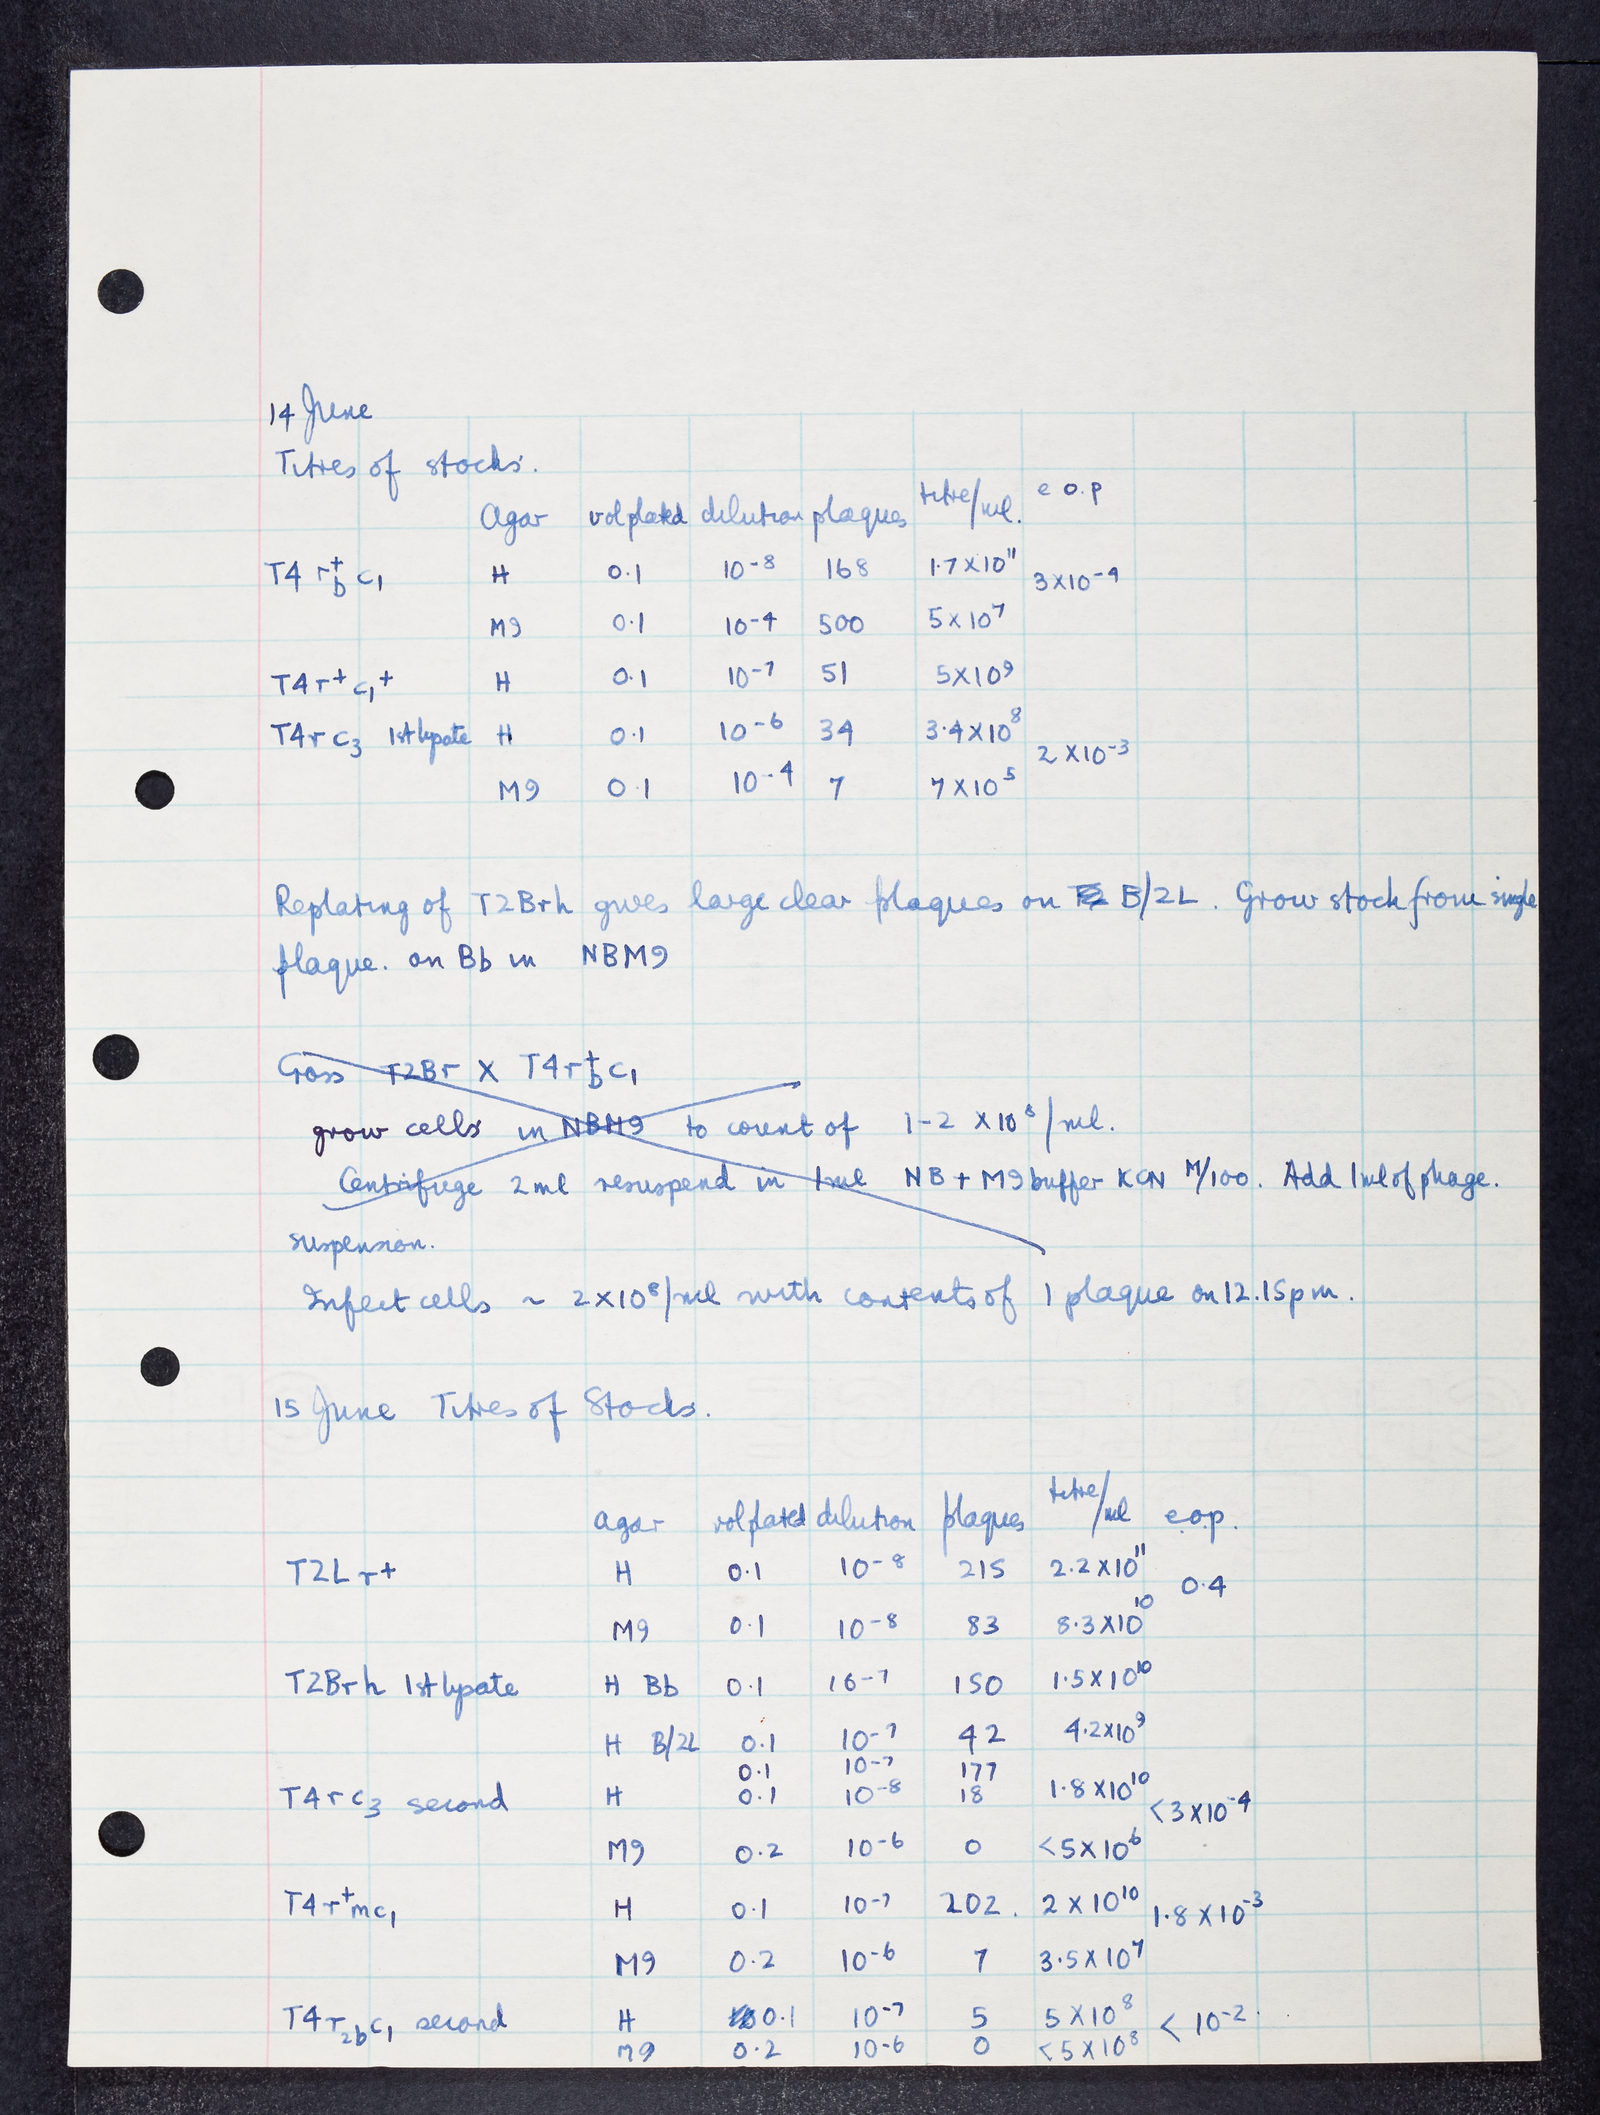 14 June
Titres of stocks.
Agar vol plated dilution plaques titre/ml. e.o.p
T4 r⁺b c₁ H 0.1 10⁻⁸ 168 1.7×10¹¹ 3×10⁻⁴
M9 0.1 10⁻⁴ 500 5×10⁷
T4 r⁺ c₁⁺ H 0.1 10⁻⁷ 51 5×10⁹
T4 r c₃ 1st lysate H 0.1 10⁻⁶ 34 3.4×10⁸ 2×10⁻³
M9 0.1 10⁻⁴ 7 7×10⁵
Replating of T2Brh gives large clear plaques on B/2L. Grow stock from single
plaque. on Bb in NBM9
Cross T2Br X T4r⁺b c₁
grow cells in NBM9 to count of 1-2 ×10⁸/ml.
Centrifuge 2ml resuspend in 1ml NB + M9 buffer KCN M/100. Add 1ml of phage.
suspension.
Infect cells ~ 2×10⁸/ml with contents of 1 plaque on 12.15pm.
15 June Titres of Stocks.
agar vol plated dilution plaques titre/ml e.o.p.
T2L r⁺ H 0.1 10⁻⁸ 215 2.2×10¹¹ 0.4
M9 0.1 10⁻⁸ 83 8.3×10¹⁰
T2Brh 1st lysate H Bb 0.1 10⁻⁷ 150 1.5×10¹⁰
H B/2L 0.1 10⁻⁷ 42 4.2×10⁹
0.1 10⁻⁷ 177
T4 r c₃ second H 0.1 10⁻⁸ 18 1.8×10¹⁰ <3×10⁻⁴
M9 0.2 10⁻⁶ 0 <5×10⁶
T4 r⁺m c₁ H 0.1 10⁻⁷ 202. 2×10¹⁰ 1.8×10⁻³
M9 0.2 10⁻⁶ 7 3.5×10⁷
T4 r₂b c₁ second H 0.1 10⁻⁷ 5 5×10⁸ <10⁻².
M9 0.2 10⁻⁶ 0 <5×10⁸